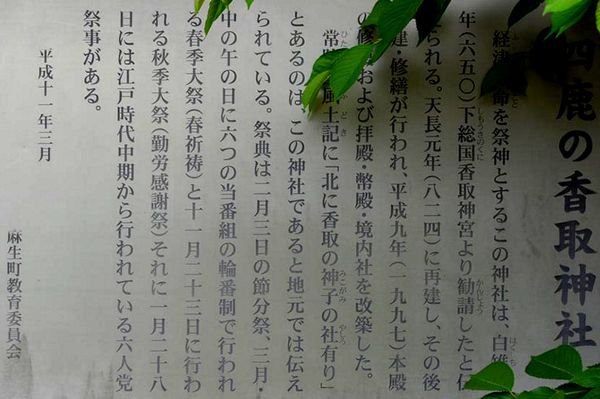 四鹿の香取神社
経津命を祭神とするこの神社は、白雉
年(六五〇)下総国香取神宮より勧請したと伝
られる。天長元年(八二四)に再建し、その後
建・修繕が行われ、平成九年(一九九七)本殿
の修および拝殿・幣殿・境内社を改築した。
常風土記に「北に香取の神子の社有り」
とあるのは、この神社であると地元では伝え
られている。祭典は二月三日の節分祭、三月・
中の午の日に六つの当番組の輪番制で行われ
る春季大祭(春祈祷)と十一月二十三日に行わ
れる秋季大祭(勤労感謝祭)それに一月二十八
日には江戸時代中期から行われている六人党
祭事がある。
平成十一年三月
麻生町教育委員会